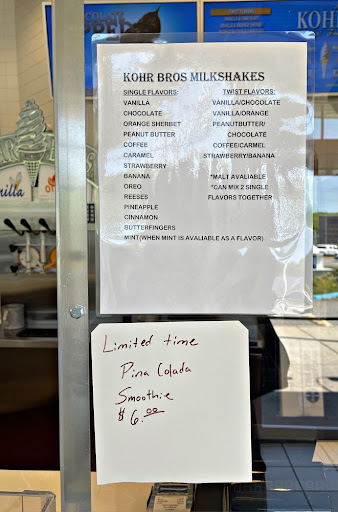 CHOCOLATE
KOHR
KOHR BROS MILKSHAKES
SINGLE FLAVORS:
VANILLA
CHOCOLATE
ORANGE SHERBET
PEANUT BUTTER
COFFEE
CARAMEL
STRAWBERRY
BANANA
OREO
REESES
PINEAPPLE
CINNAMON
BUTTERFINGERS
MINT(WHEN MINT IS AVALIABLE AS A FLAVOR)
TWIST FLAVORS:
VANILLA/CHOCOLATE
VANILLA/ORANGE
PEANUTBUTTER/
CHOCOLATE
COFFEE/CARMEL
STRAWBERRY/BANANA
*MALT AVALIABLE
*CAN MIX 2 SINGLE
FLAVORS TOGETHER
nilla
Limited time
Pina Colada
Smoothie
$6.00